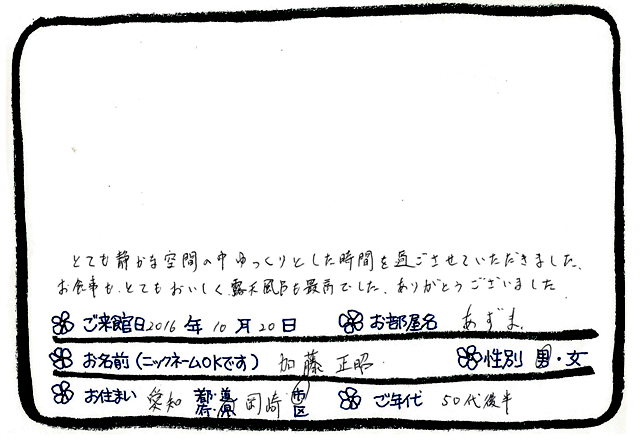 とても静かな空間の中ゆっくりとした時間を過ごさせていただきました。
お食事も、とてもおいしく、露天風呂も最高でした。ありがとうございました
ご来館日 2016 年 10 月 20 日 お部屋名 あずま
お名前(ニックネームOKです) 加藤 正昭 性別 男・女
お住まい 愛知 都道府県 岡崎 市区 ご年代 50代後半